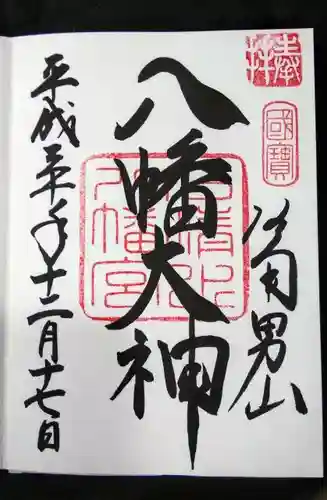 奉拝
國寶
男山
八幡大神
石清水
八幡宮
平成三十年十二月十七日